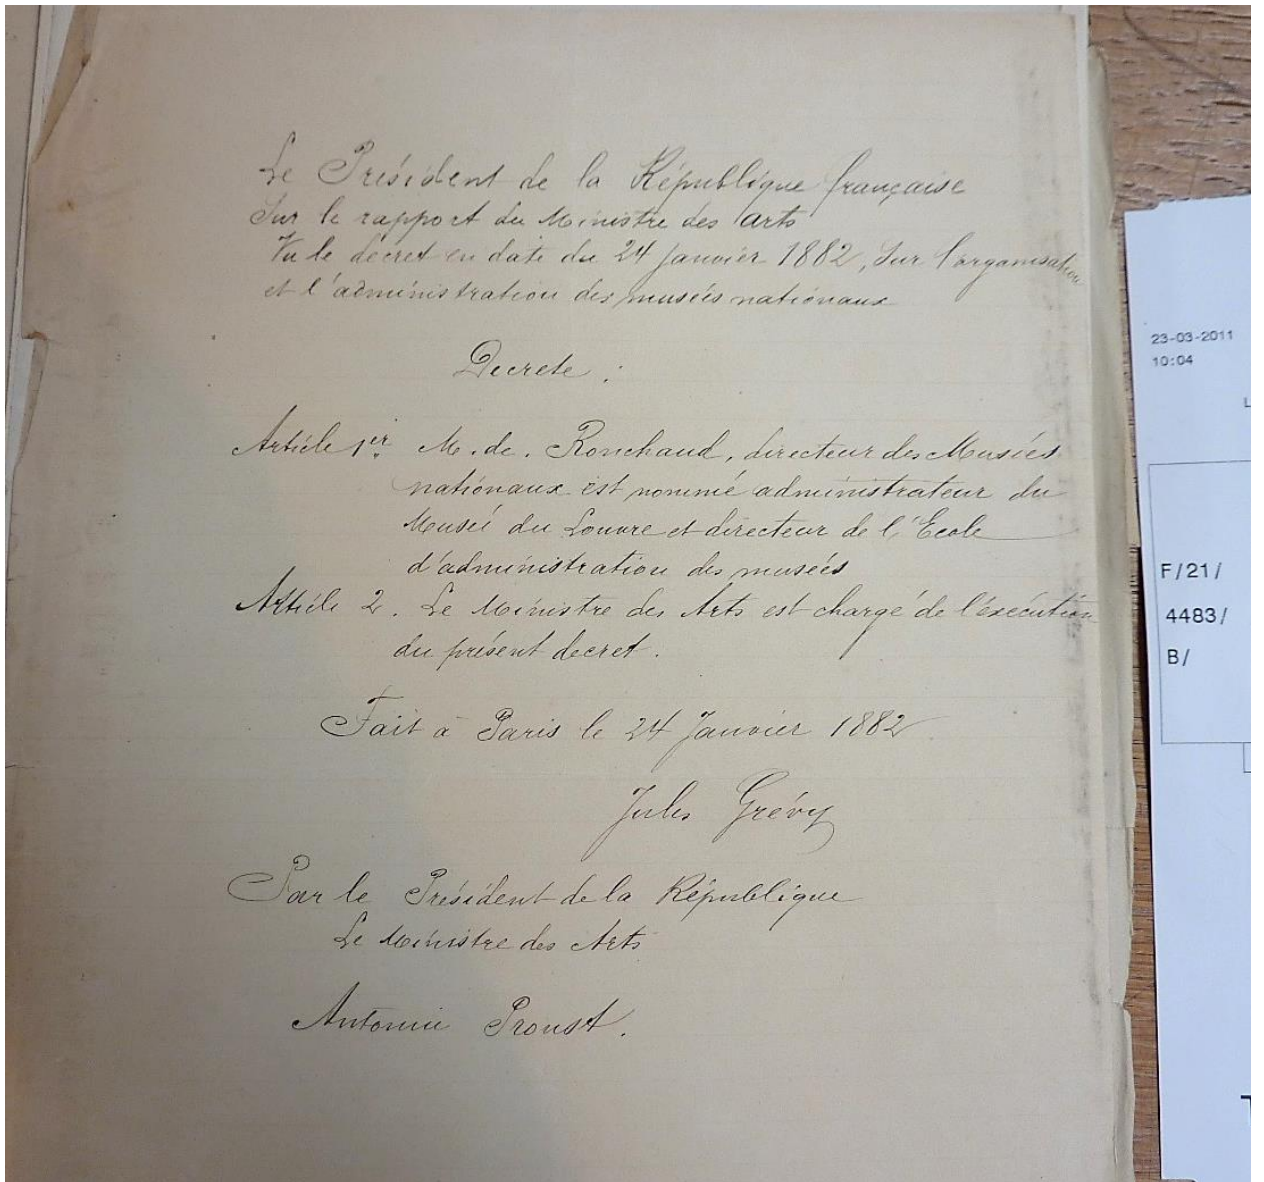 Le Président de la République française
Sur le rapport du Ministre des arts
Vu le décret en date du 24 janvier 1882, sur l'organisation
et l'administration des musées nationaux
Decrete :
Article 1er. M. de. Ronchaud, directeur des Musées
nationaux est nommé administrateur du
Musée du Louvre et directeur de l'Ecole
d'administration des musées
Article 2. Le Ministre des Arts est chargé de l'éxécution
du présent decret.
Fait à Paris le 24 Janvier 1882
Jules Grévy
Par le Président de la République
Le Ministre des Arts
Antonin Proust.
23-03-2011
10:04
L
F/21/
4483/
B/